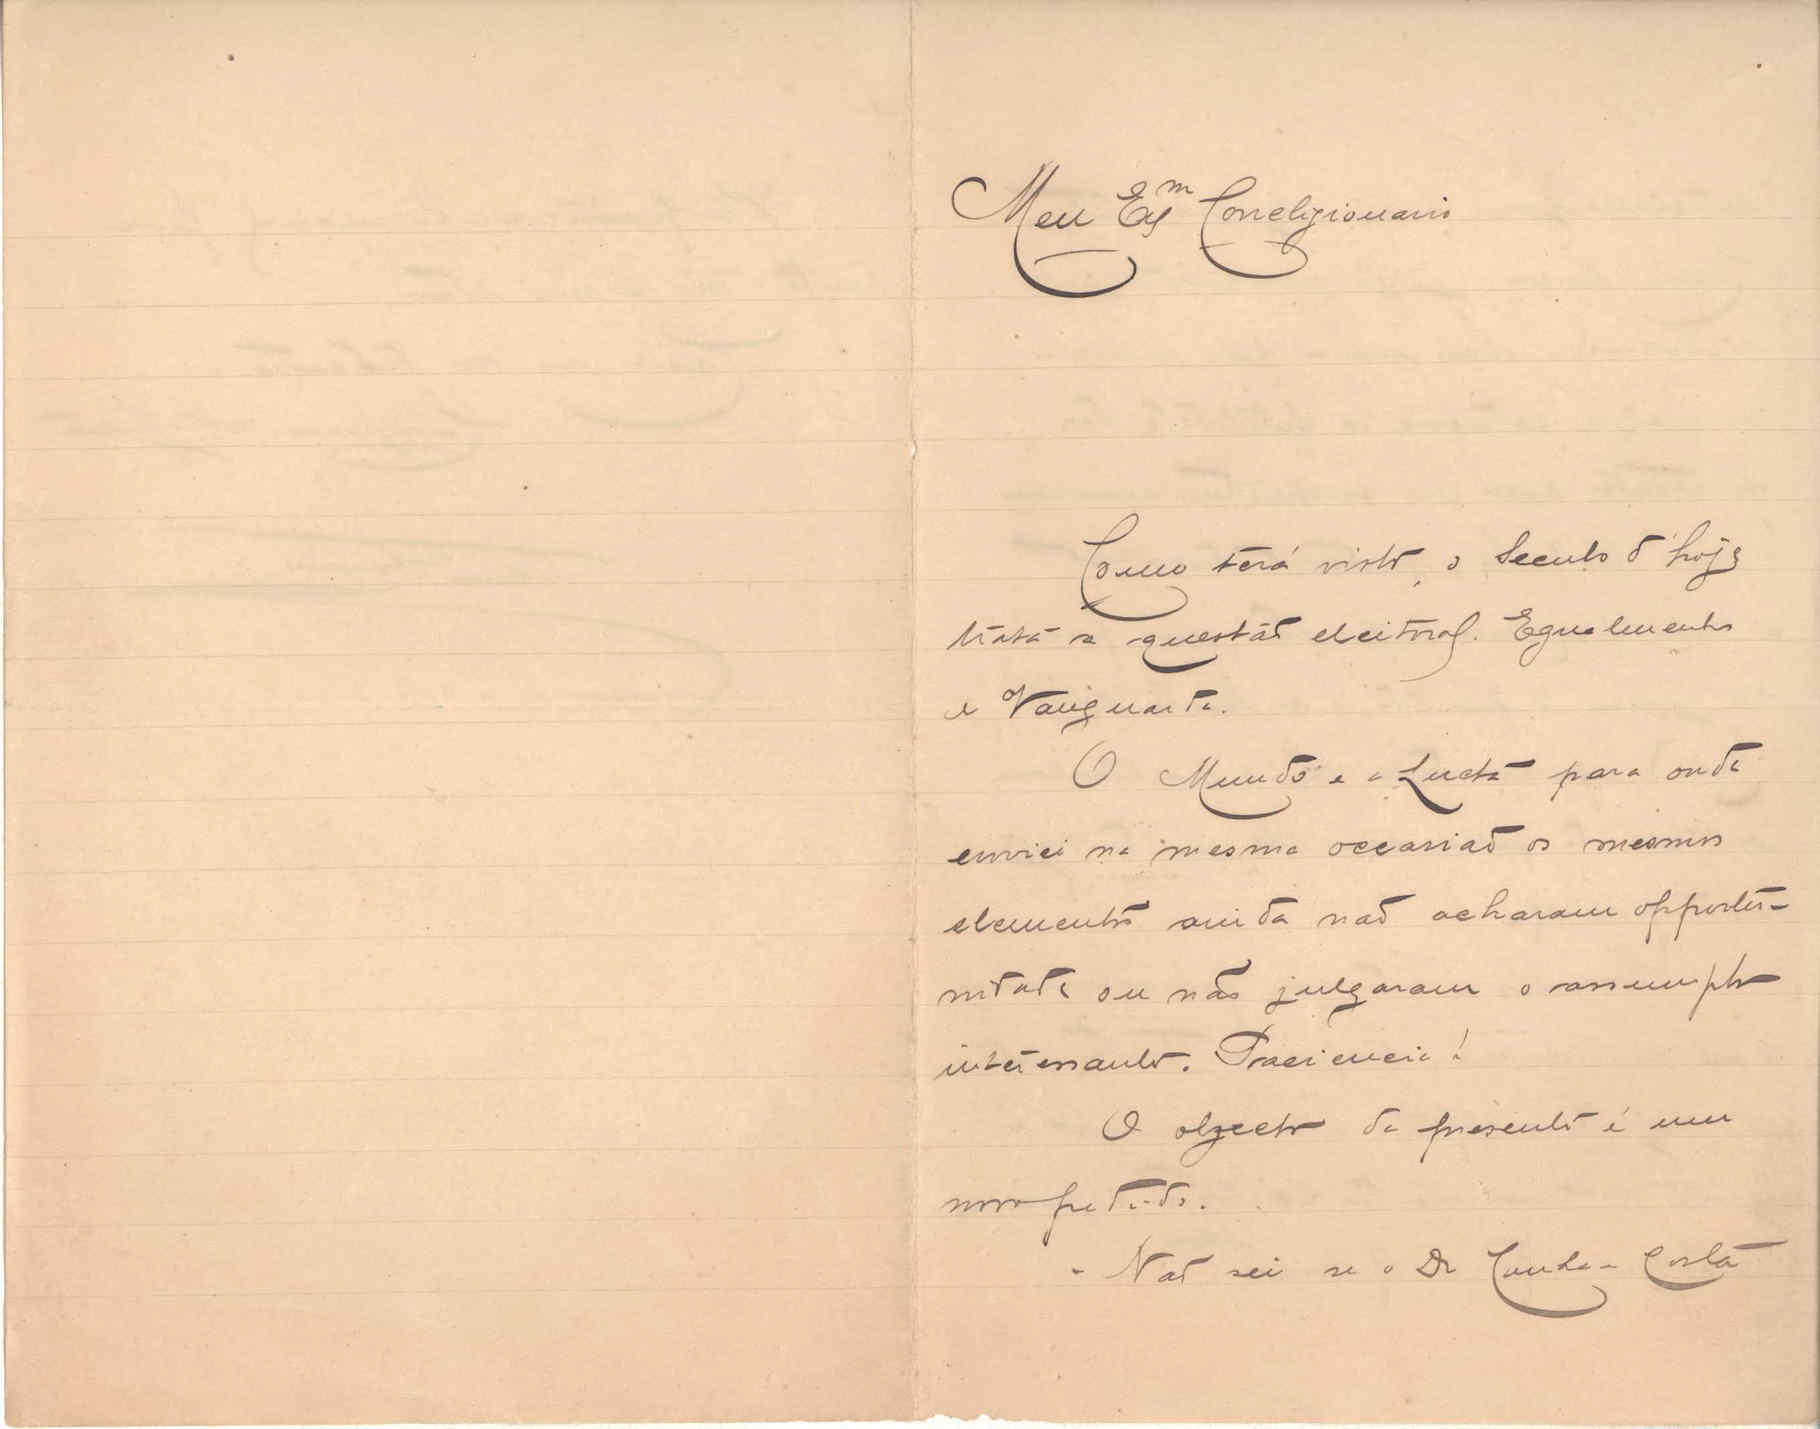 Meu Ex.m Correligionario
Como terá visto, o Seculo d'hoje
trata a questão eleitoral. Egualmente
a Vanguarda.
O Mundo e a Lucta para onde
enviei na mesma occasião os mesmos
elementos ainda não acharam opportu-
nidade ou não julgaram o assumpto
interessante. Paciencia!
O objecto da presente é um
novo pedido.
- Não sei se o Dr Cunha e Costa